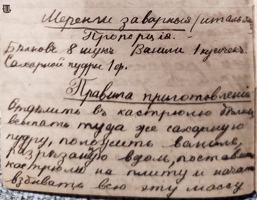 Меренги заварныя /итальян
Пропорція.
Бѣлковъ 8 штук Ванили 1 кусочек.
Сахарной пудры 1 ф.
Правила приготовленія
Отдѣлить въ кастрюлю бѣлки,
всыпать туда же сахарную
пудру, положить ваниль,
разрѣзанную вдоль, поставить
кастрюлю на плиту и начать
взбивать всю эту массу